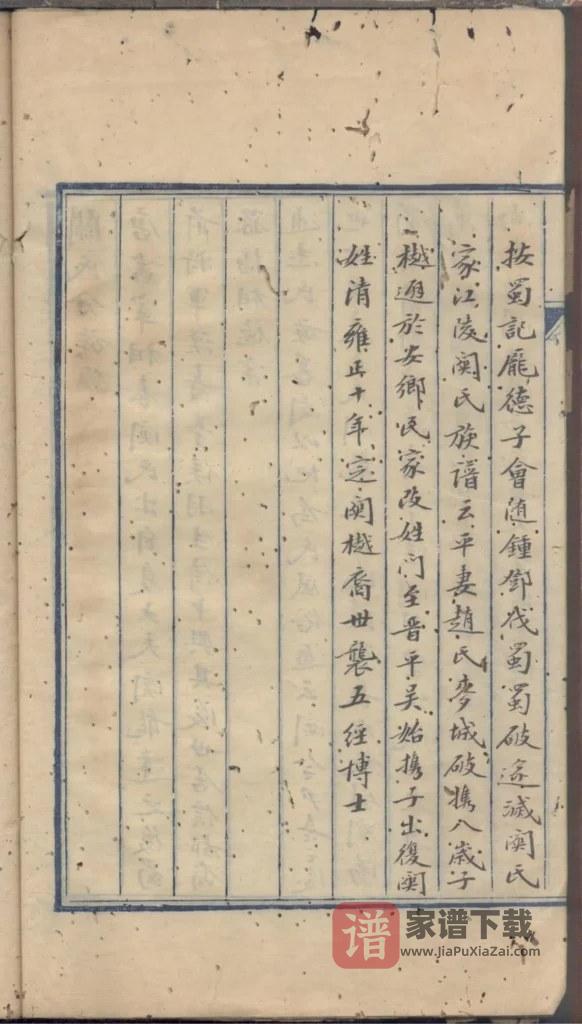 按蜀記龐德子會随鍾鄧伐蜀蜀破盡滅関氏
家江陵関氏族譜云平妻趙氏麥城破携八歲子
樾遯於安鄉民家改姓门至晋平吴始携子出復関
姓清雍正十年定関樾裔世襲五經博士
谱 家谱下载
www.JiaPuXiaZai.com